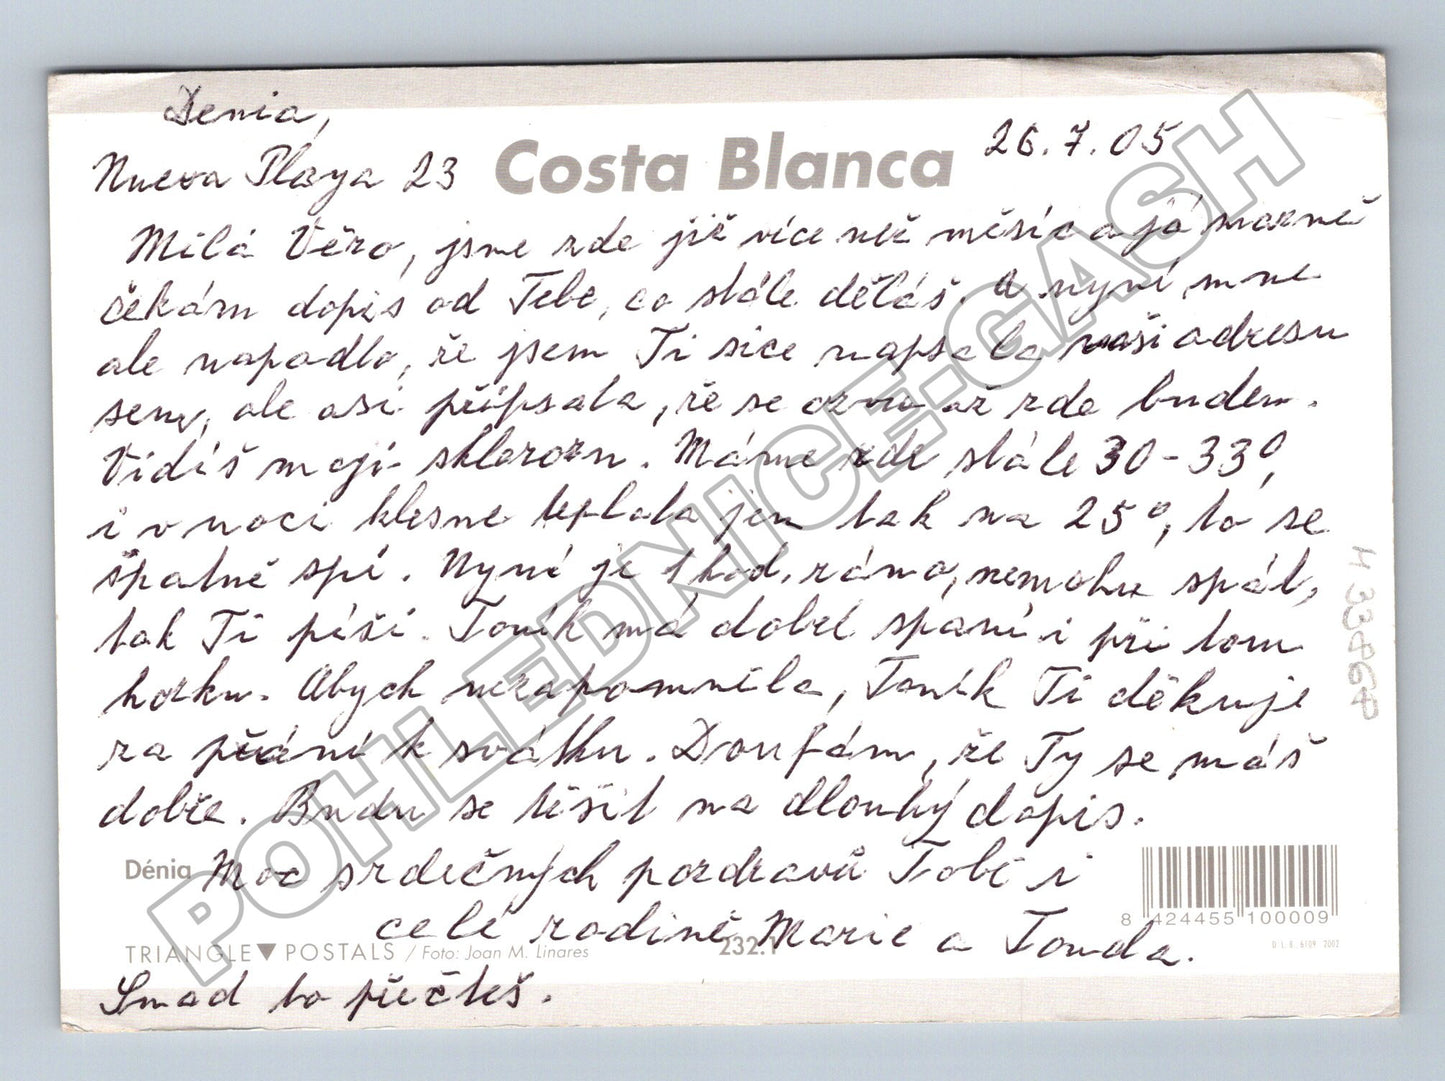 Denia,
Nueva Playa 23
Costa Blanca
26.7.05
Milá Věro, jsme zde již více než měsíc a já marně
čekám dopis od Tebe, co stále děláš. A nyní mne
ale napadlo, že jsem Ti sice napsala naši adresu
sem, ale asi připsala, že se ozvu až zde budem.
Vidíš moji sklerozu. Máme zde stále 30-33°,
i v noci klesne teplota jen tak na 25°, to se
špatně spí. Nyní je 1 hod. ráno, nemohu spát,
tak Ti píši. Toník má dobré spaní i při tom
horku. Abych nezapomněla, Toník Ti děkuje
za přání k svátku. Doufám, že Ty se máš
dobře. Budu se těšit na dlouhý dopis.
Moc srdečných pozdravů Tobě i
celé rodině Marie a Tonda.
Snad to přečteš.
Dénia
TRIANGLE▼POSTALS / Foto: Joan M. Linares
232.1
8 424455 100009
D.L.B. 6109 2002
H 33860
POHLEDNICE.GASH